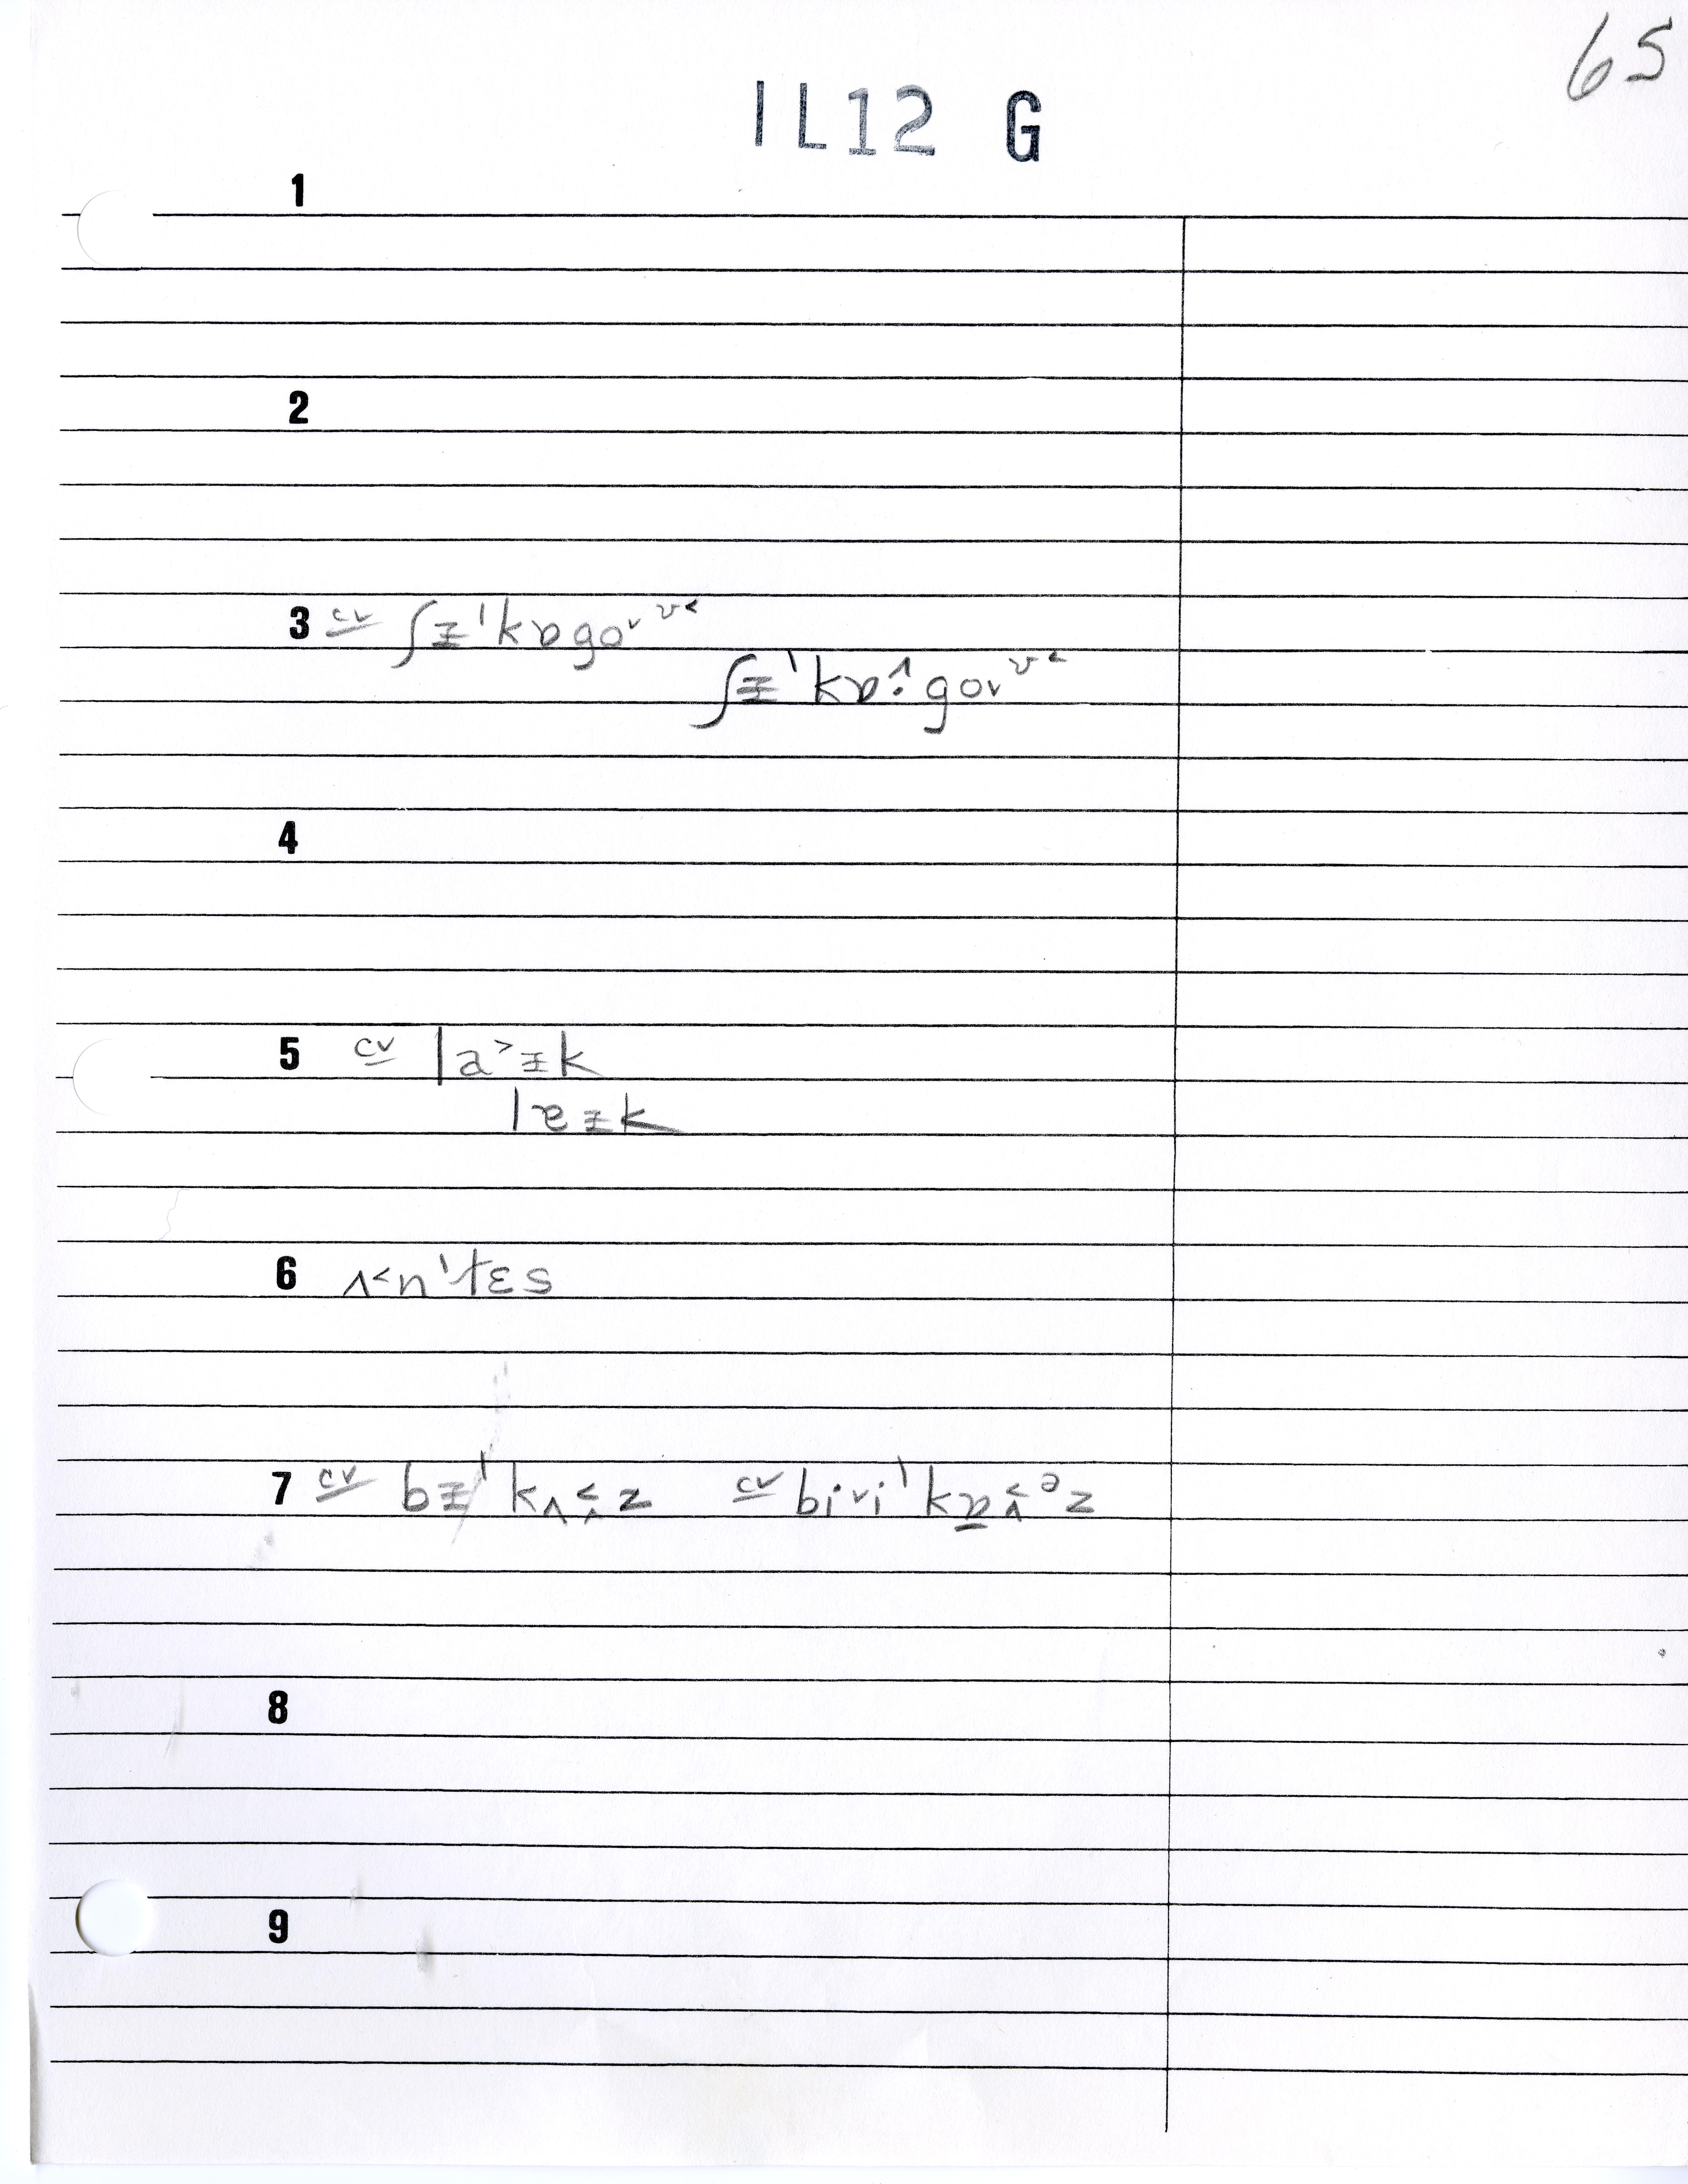 65
IL12 G
1
2
3 cv ʃɪ̵ˈkɒgoˇᶷ˂
ʃɪ̵ˈkɒ˄̣go˅ᶷ˂
4
5 cv la˃ɪ̵k
lɐɪ̵k
6 ʌ˂nˈtɛs
7 cv bɪ̵ˈkʌ˂̭z cv biˇiˈkɒ̲˂̭ᵊz
8
9